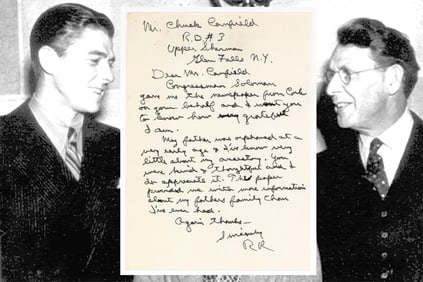 Mr. Chuck Canfield
R.D. #3
Upper Sherman
Glen Falls N.Y.
Dear Mr. Canfield
Congressman Solomon
gave me the newspaper from Cork
on your behalf and I want you
to know how very grateful
I am.
My father was orphaned at a
very early age & I've known very
little about my ancestry. You
were kind & thoughtful and I
do appreciate it. The paper
provided me with more information
about my fathers family than
I've ever had.
Again thanks—
Sincerely
RR